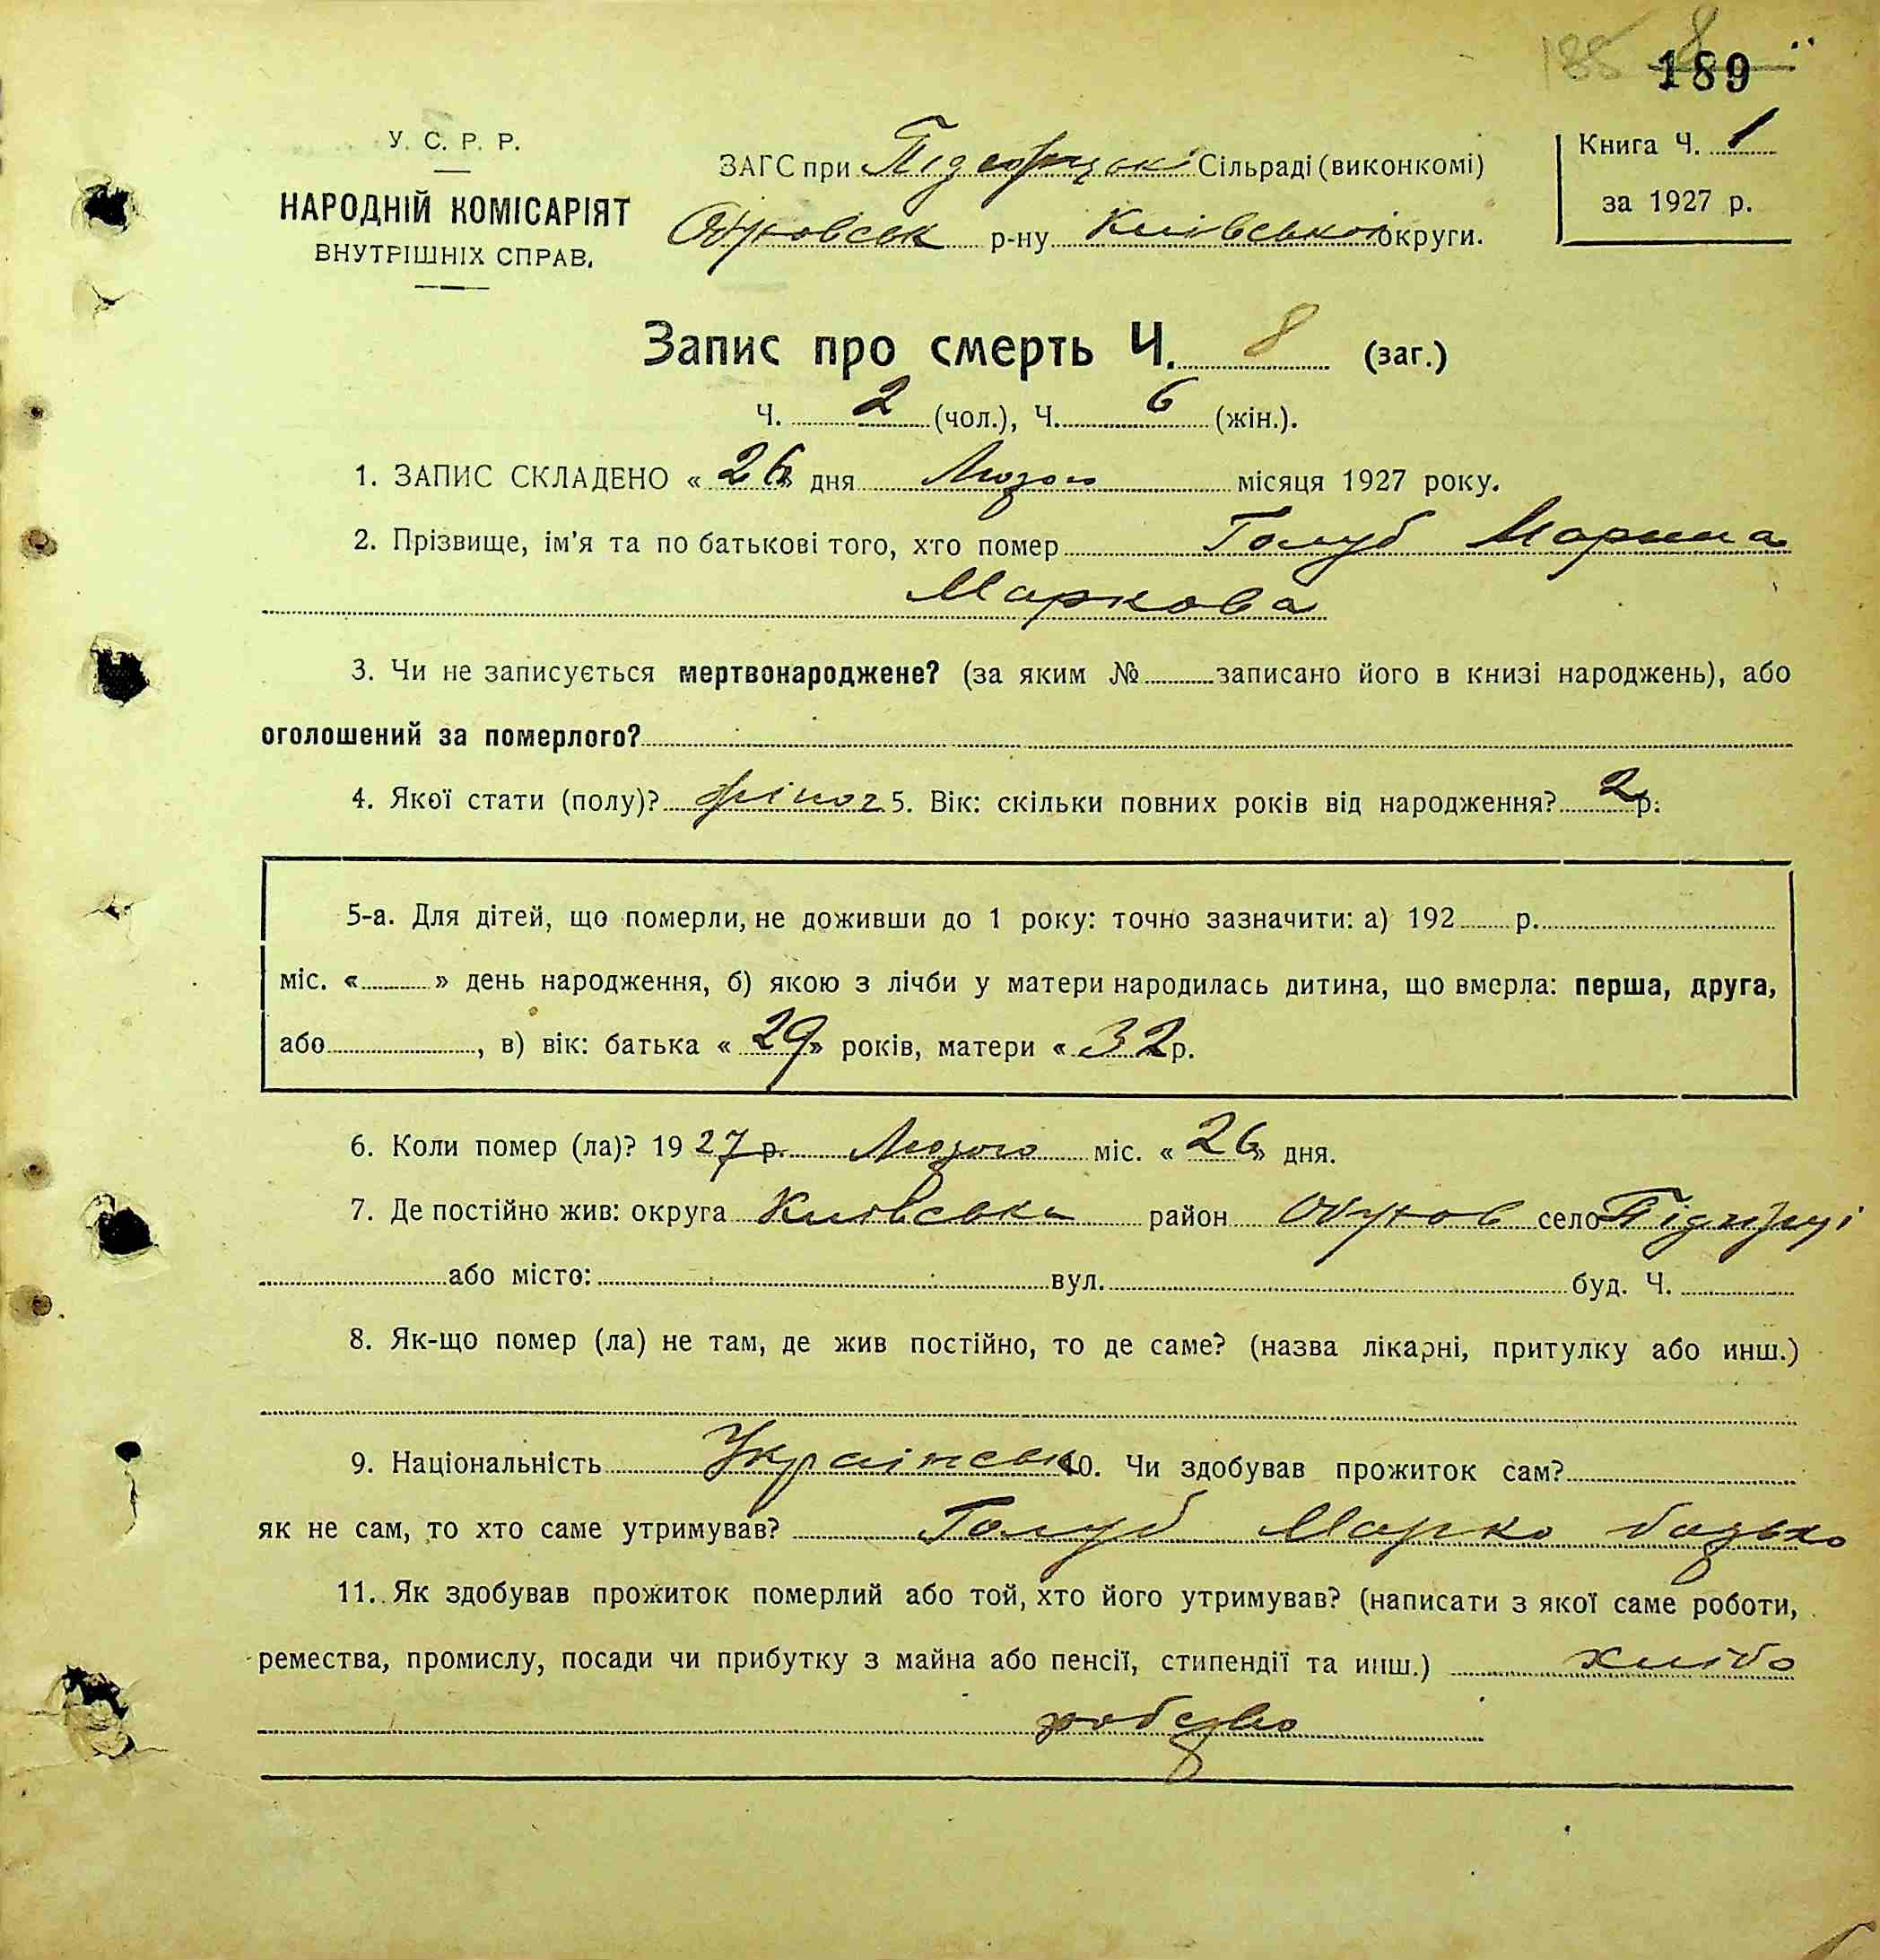 189
У. С. Р. Р.
НАРОДНІЙ КОМІСАРІЯТ
ВНУТРІШНІХ СПРАВ.
ЗАГС при Сільраді (виконкомі)
р-ну Київської округи.
Книга Ч. 1
за 1927 р.
Запис про смерть Ч. 8 (заг.)
Ч. 2 (чол.), Ч. 6 (жін.).
1. ЗАПИС СКЛАДЕНО « 26 » дня Лютого місяця 1927 року.
2. Прізвище, ім'я та по батькові того, хто помер Голуб Марина
Маркова
3. Чи не записується мертвонароджене? (за яким № записано його в книзі народжень), або
оголошений за померлого?
4. Якої стати (полу)? жіноч 5. Вік: скільки повних років від народження? 2 р.
5-а. Для дітей, що померли, не доживши до 1 року: точно зазначити: а) 192 р.
міс. « » день народження, б) якою з лічби у матери народилась дитина, що вмерла: перша, друга,
або , в) вік: батька « 29 » років, матери « 32 р.
6. Коли помер (ла)? 19 27 р. Лютого міс. « 26 » дня.
7. Де постійно жив: округа Київська район Обухов село Підгірці
або місто: вул. буд. Ч.
8. Як-що помер (ла) не там, де жив постійно, то де саме? (назва лікарні, притулку або инш.)
9. Національність Українська 10. Чи здобував прожиток сам?
як не сам, то хто саме утримував? Голуб Марко батько
11. Як здобував прожиток померлий або той, хто його утримував? (написати з якої саме роботи,
ремества, промислу, посади чи прибутку з майна або пенсії, стипендії та инш.) хлібо
робство